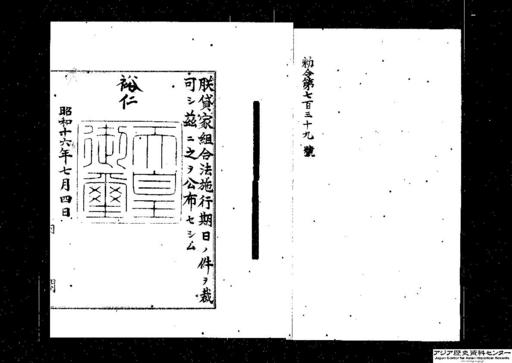 勅令第七百三十九號
朕貸家組合法施行期日ノ件ヲ裁
可シ茲ニ之ヲ公布セシム
裕仁
天皇
御璽
昭和十六年七月四日
アジア歴史資料センター
Japan Center for Asian Historical Records